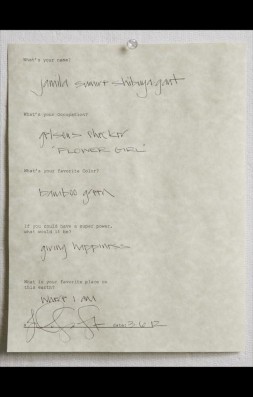 What's your name?
jamila
What's your occupation?
checker
"FLOWER GIRL"
What's your favorite color?
bamboo green
If you could have a super power,
what would it be?
giving happiness
What is your favorite place on
this earth?
where I am
3-6-12